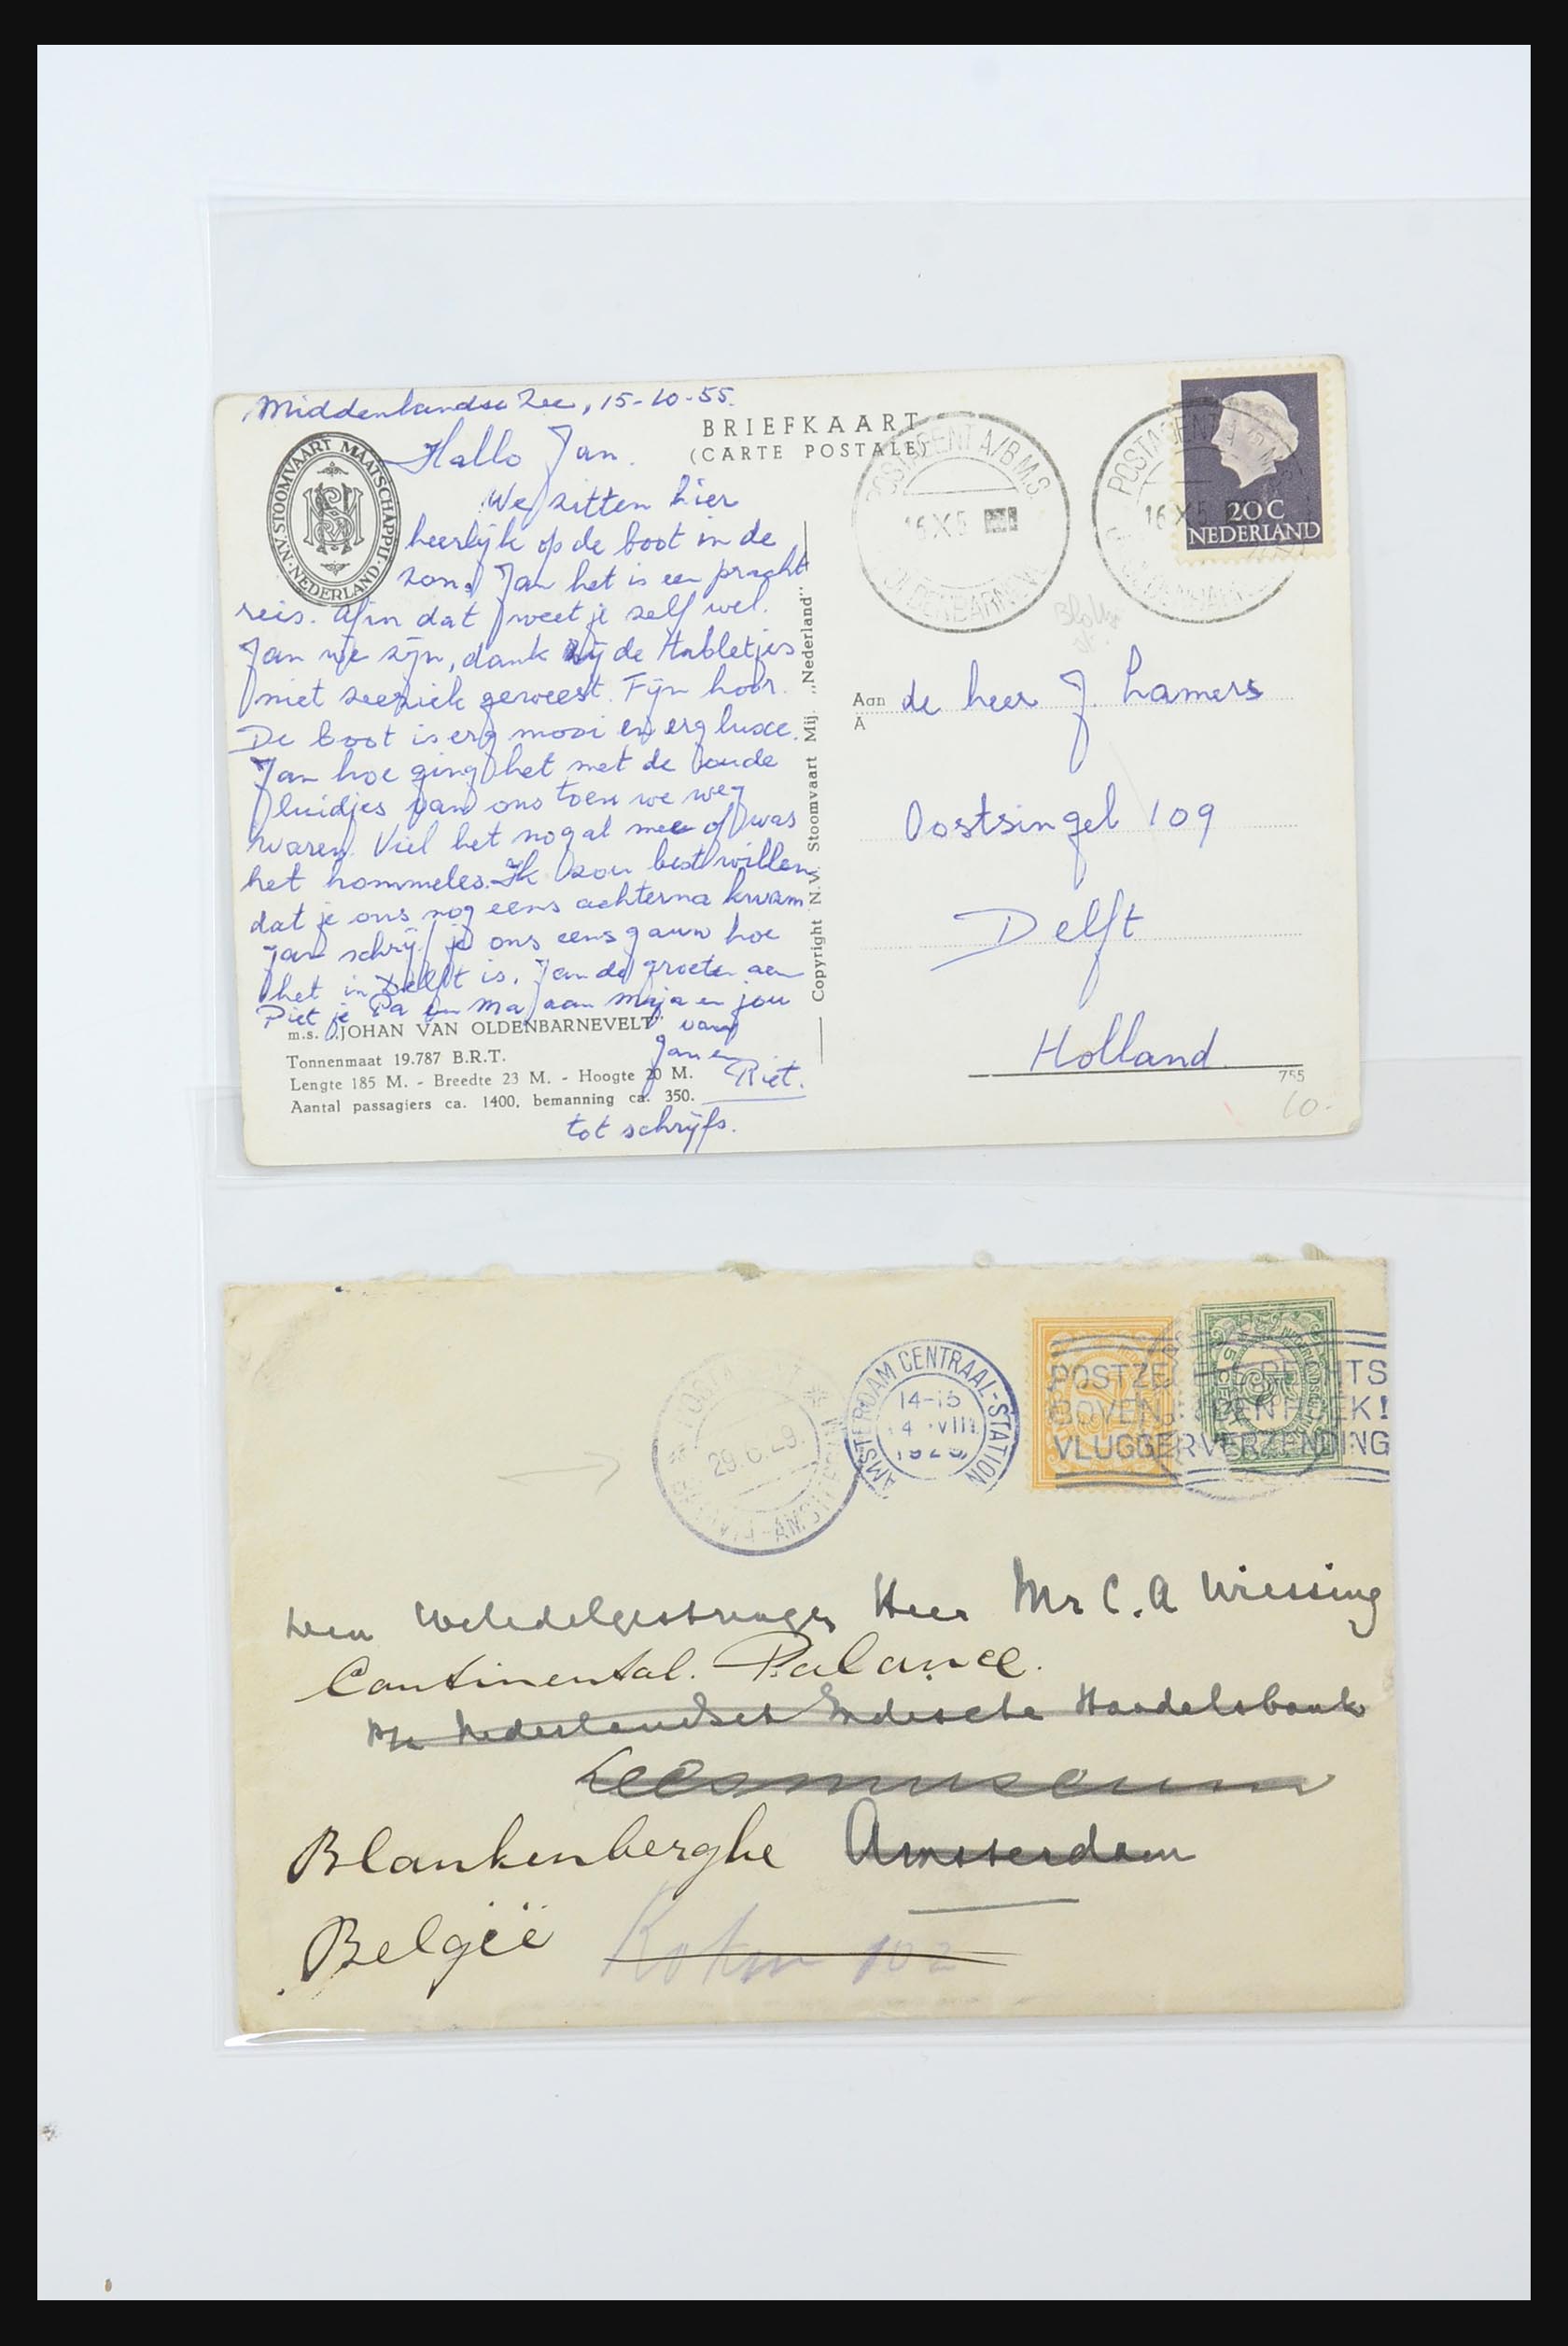 Middenlandse Zee, 15-10-55.
BRIEFKAART
(CARTE POSTALE)
N.V. STOOMVAART MAATSCHAPPIJ · NEDERLAND ·
Hallo Jan.
We zitten hier
heerlijk op de boot in de
zon. Jan het is een pracht
reis. Afin dat weet je zelf wel.
Jan we zijn, dank zij de tabletjes
niet zeeziek geweest. Fijn hoor.
De boot is erg mooi en erg luxe.
Jan hoe ging het met de oude
luidjes van ons toen we weg
waren. Viel het nogal mee of was
het hommeles. Ik zou best willen
dat je ons nog eens achterna kwam
Jan schrijf je ons eens gauw hoe
het in Delft is. Jan de groeten aan
Piet je Pa en Ma aan Marja en jou
van
Jan en
Riet.
tot schrijfs.
m.s. „JOHAN VAN OLDENBARNEVELT"
Tonnenmaat 19.787 B.R.T.
Lengte 185 M. - Breedte 23 M. - Hoogte 20 M.
Aantal passagiers ca. 1400, bemanning ca. 350.
Copyright N.V. Stoomvaart Mij. „Nederland"
POSTAGENT A/B M.S.
16 X 5
OLDENBARNEV
POSTAGENT A/B M.S.
16 X 5
20 C
NEDERLAND
Aan
A
de heer J. Lamers
Oostsingel 109
Delft
Holland
755
10.-
29.6.29.
AMSTERDAM CENTRAAL-STATION
14-15
4 VIII
1929
POSTZEGELS RECHTS
BOVEN
VLUGGER VERZENDING
Den Weledelgestrengen Heer Mr C. A Wiessing
Continental. Palance.
p/a Nederlandsch Indische Handelsbank
Leesmuseum
Blankenberghe Amsterdam
Belgïe
102